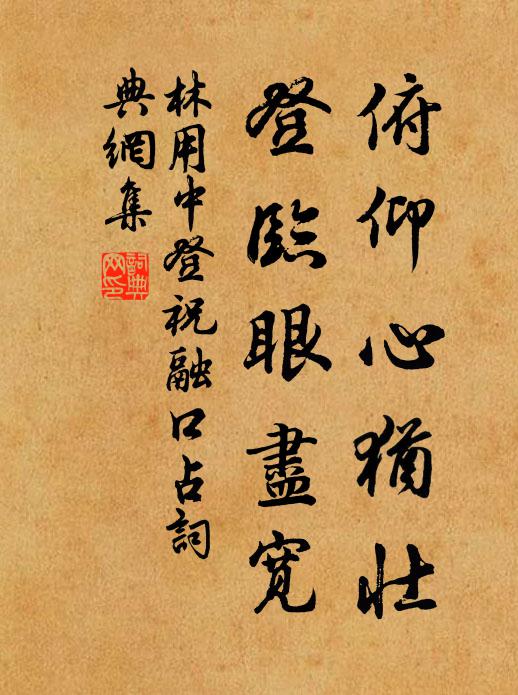 俯仰心猶壯
登臨眼盡寬
林用中登祝融口占詞
典網集
詞典网印